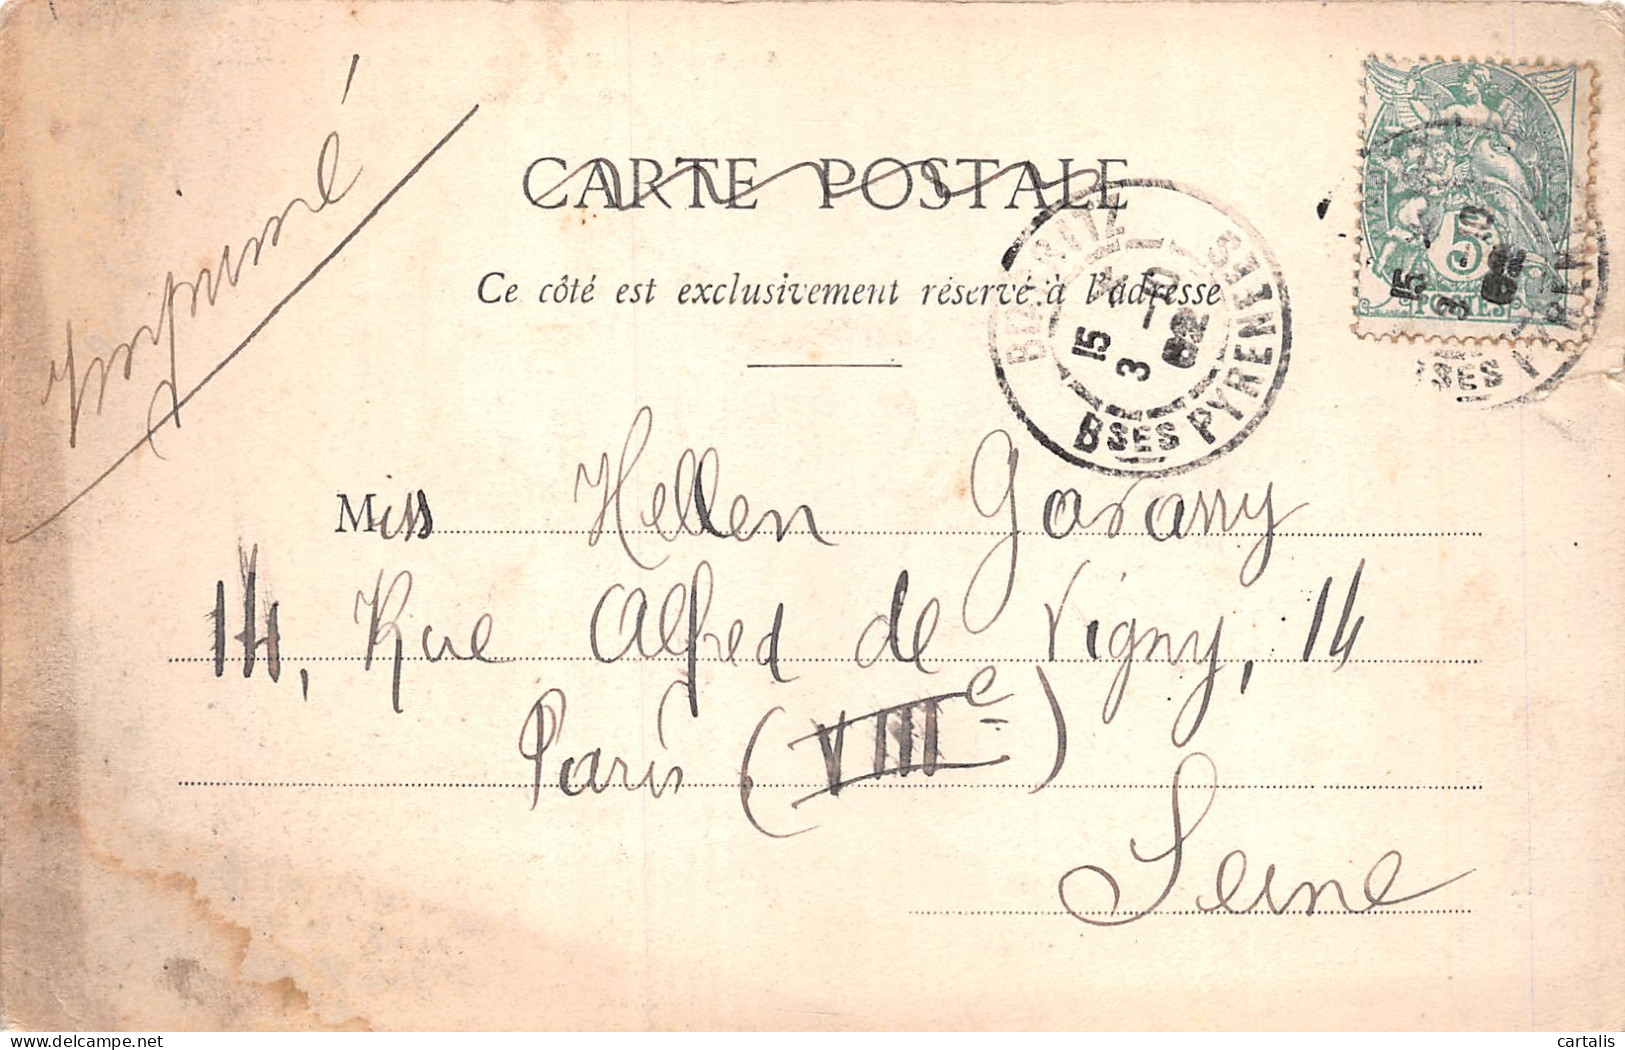 Imprimé
CARTE POSTALE
Ce côté est exclusivement réservé à l'adresse
BIARRITZ
15
3
02
BSES PYRENEES
5
POSTES
15
3
02
BSES PYREN
Miss Hellen
14, Rue Alfred de Vigny, 14
Paris (VIIIe)
Seine
delcampe.net
cartalis